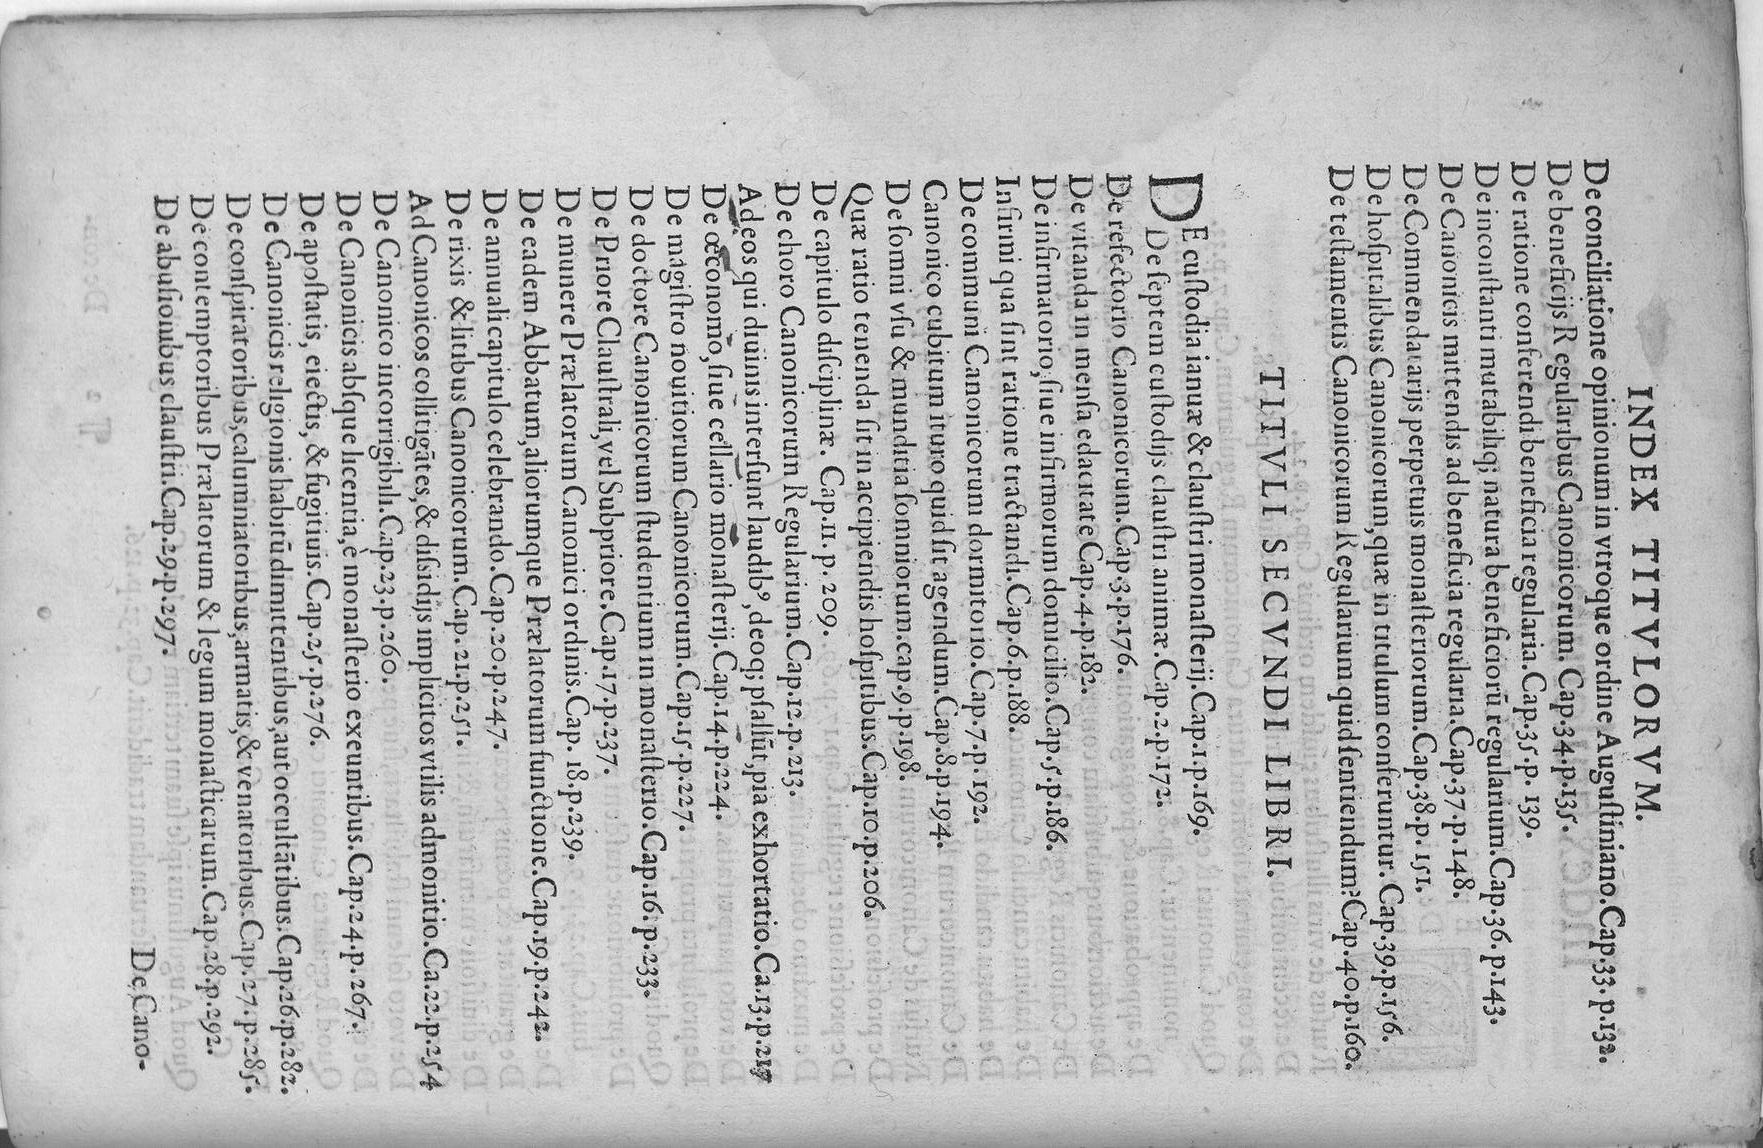 INDEX TITVLORVM.
De conciliatione opinionum in vtroque ordine Auguſtiniano. Cap.33. p.132.
De beneficijs Regularibus Canonicorum. Cap.34.p.135.
De ratione conferendi beneficia regularia. Cap.35.p. 139.
De inconſtanti mutabiliq; natura beneficiorū regularium. Cap.36.p.143.
De Canonicis mittendis ad beneficia regularia. Cap.37.p.148.
De Commendatarijs perpetuis monaſteriorum. Cap.38.p. 151.
De hoſpitalibus Canonicorum, quæ in titulum conferuntur. Cap.39.p.156.
De teſtamentis Canonicorum Regularium quid ſentiendum? Cap.40.p.160.
TITVLI SECVNDI LIBRI.
DE cuſtodia ianuæ & clauſtri monaſterij. Cap.1.p.169.
De ſeptem cuſtodijs clauſtri animæ. Cap.2.p.172.
De refectorio Canonicorum. Cap.3.p.176.
De vitanda in menſa edacitate Cap.4.p.182.
De infirmatorio, ſiue infirmorum domicilio. Cap.5.p.186.
Infirmi qua ſint ratione tractandi. Cap.6.p.188.
De communi Canonicorum dormitorio. Cap.7.p. 192.
Canonico cubitum ituro quid ſit agendum. Cap.8.p.194.
De ſomni vſu & munditia ſomniorum. cap.9.p.198.
Quæ ratio tenenda ſit in accipiendis hoſpitibus. Cap.10.p.206.
De capitulo diſciplinæ. Cap.11. p. 209.
De choro Canonicorum Regularium. Cap.12.p.213.
Ad eos qui diuinis interſunt laudibꝰ, deoq; pſallūt, pia exhortatio. Ca.13.p.217
De œconomo, ſiue cellario monaſterij. Cap.14.p.224.
De magiſtro nouitiorum Canonicorum. Cap.15.p.227.
De doctore Canonicorum ſtudentium in monaſterio. Cap.16.p.233.
De Priore Clauſtrali, vel Subpriore. Cap.17.p.237.
De munere Prælatorum Canonici ordinis. Cap. 18.p.239.
De eadem Abbatum, aliorumque Prælatorum functione. Cap.19.p.242.
De annuali capitulo celebrando. Cap.20.p.247.
De rixis & litibus Canonicorum. Cap.21.p.251.
Ad Canonicos collitigātes, & diſsidijs implicitos vtilis admonitio. Ca.22.p.254
De Canonico incorrigibili. Cap.23.p.260.
De Canonicis abſque licentia, è monaſterio exeuntibus. Cap.24.p.267.
De apoſtatis, eiectis, & fugitiuis. Cap.25.p.276.
De Canonicis religionis habitū dimittentibus, aut occultātibus. Cap.26.p.282.
De conſpiratoribus, calumniatoribus, armatis, & venatoribus. Cap.27.p.285.
De contemptoribus Prælatorum & legum monaſticarum. Cap.28.p.292.
De abuſionibus clauſtri. Cap.29.p.297.
De Cano-